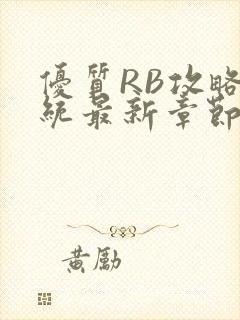 優質RB攻略
統最新章節
黃勵